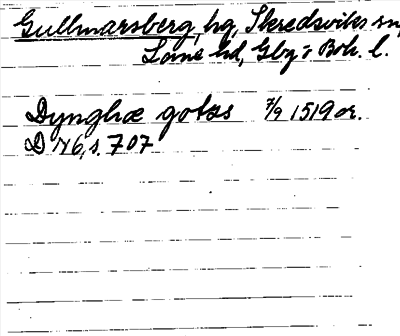 Gullmarsberg, hg, Skredsviks sn,
Lane hd, Gbg o Boh. l.
Dynghæ gotzs 7/9 1519 or.
D 176, s. 707